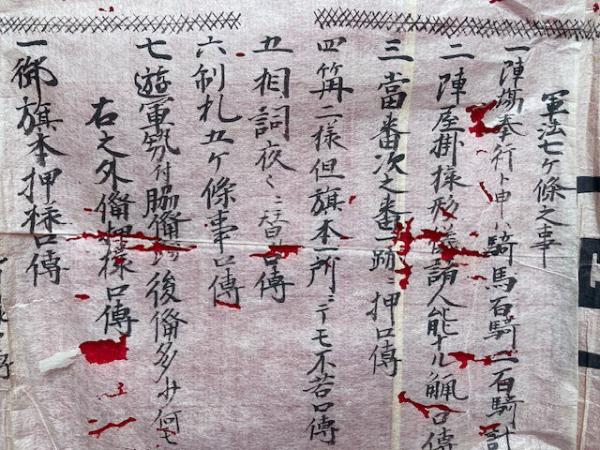 軍法七ケ條之事
一陣場奉行ト申ハ騎馬百騎二百騎計
二陣屋掛様形儀諸人能ナル觸口傳
三當番次之番ニ跡ニ押口傳
四篝二様但旗本一所ニテモ不苦口傳
五相詞夜々ニ替口傳
六制札五ケ條事口傳
七遊軍勢付脇備後備多少何モ
右之外備押様口傳
一御旗本押様口傳